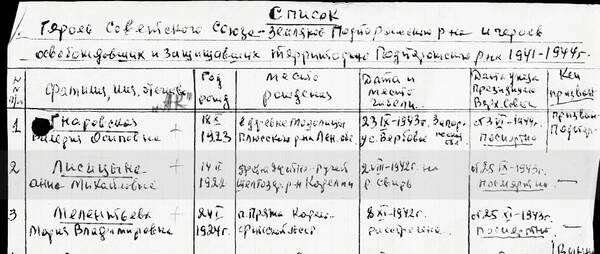 Список
Героев Советского Союза-земляков Подпорожского р-на и героев
освобождавших и защищавших территорию Подпорожского р-на 1941-1944г.
№ п/п
фамилия, имя, отчество
Год рожд
место рождения
Дата и место гибели
Дата указа Президиума Верх. Совета
Кем призван
1
Гнаровская
Валерия Осиповна
18 X
1923
в деревне Модолицы
Плюсского р-на Лен. обл.
23 IX-1943г. Запор.
ус. Вербова
от 3 -1943г.
посмертно
призван
Подпор.
2
Лисицына
Анна Михайловна
14 II
1922
Житно-ручей
Шелтозер. р-н Карелии
2 VIII-1942г. на
р. Свирь
от 25 IX-1943г.
посмертно
—
3
Мелентьева
Мария Владимировна
24 I
1924г.
п. Пряжа Карело-
финской ССР
2 VII-1942г.
расстреляна
от 25 IX-1943г.
посмертно
—